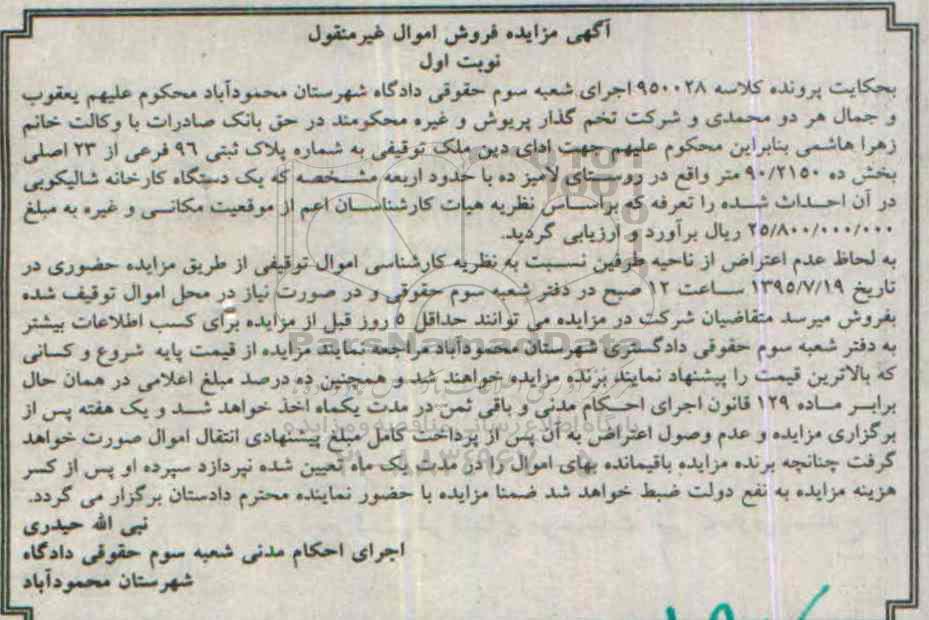 آگهی مزایده فروش اموال غیرمنقول
نوبت اول
بحکایت پرونده کلاسه ۹۵۰۰۲۸ اجرای شعبه سوم حقوقی دادگاه شهرستان محمودآباد محکوم علیهم یعقوب
و جمال هر دو محمدی و شرکت تخم گذار پریوش و غیره محکومند در حق بانک صادرات با وکالت خانم
زهرا هاشمی بنابراین محکوم علیهم جهت ادای دین ملک توقیفی به شماره پلاک ثبتی ۹۶ فرعی از ۲۳ اصلی
بخش ده ۹۰/۲۱۵۰ متر واقع در روستای لامیز ده با حدود اربعه مشخصه که یک دستگاه کارخانه شالیکوبی
در آن احداث شده را تعرفه که براساس نظریه هیات کارشناسان اعم از موقعیت مکانی و غیره به مبلغ
۲۵/۸۰۰/۰۰۰/۰۰۰ ریال برآورد و ارزیابی گردید.
به لحاظ عدم اعتراض از ناحیه طرفین نسبت به نظریه کارشناسی اموال توقیفی از طریق مزایده حضوری در
تاریخ ۱۳۹۵/۷/۱۹ ساعت ۱۲ صبح در دفتر شعبه سوم حقوقی و در صورت نیاز در محل اموال توقیف شده
بفروش میرسد متقاضیان شرکت در مزایده می توانند حداقل ۵ روز قبل از مزایده برای کسب اطلاعات بیشتر
به دفتر شعبه سوم حقوقی دادگستری شهرستان محمودآباد مراجعه نمایند مزایده از قیمت پایه شروع و کسانی
که بالاترین قیمت را پیشنهاد نمایند برنده مزایده خواهند شد و همچنین ده درصد مبلغ اعلامی در همان حال
برابر ماده ۱۲۹ قانون اجرای احکام مدنی و باقی ثمن در مدت یکماه اخذ خواهد شد و یک هفته پس از
برگزاری مزایده و عدم وصول اعتراض به آن پس از پرداخت کامل مبلغ پیشنهادی انتقال اموال صورت خواهد
گرفت چنانچه برنده مزایده باقیمانده بهای اموال را در مدت یک ماه تعیین شده نپردازد سپرده او پس از کسر
هزینه مزایده به نفع دولت ضبط خواهد شد ضمنا مزایده با حضور نماینده محترم دادستان برگزار می گردد.
نبی الله حیدری
اجرای احکام مدنی شعبه سوم حقوقی دادگاه
شهرستان محمودآباد
ParsNamadData
پایگاه اطلاع رسانی مناقصه و مزایده